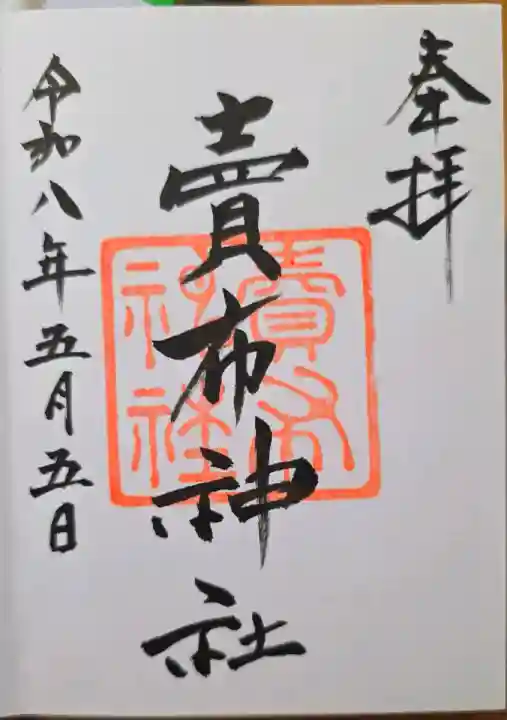 奉拝
賣布神社
賣布神社
令和八年五月五日